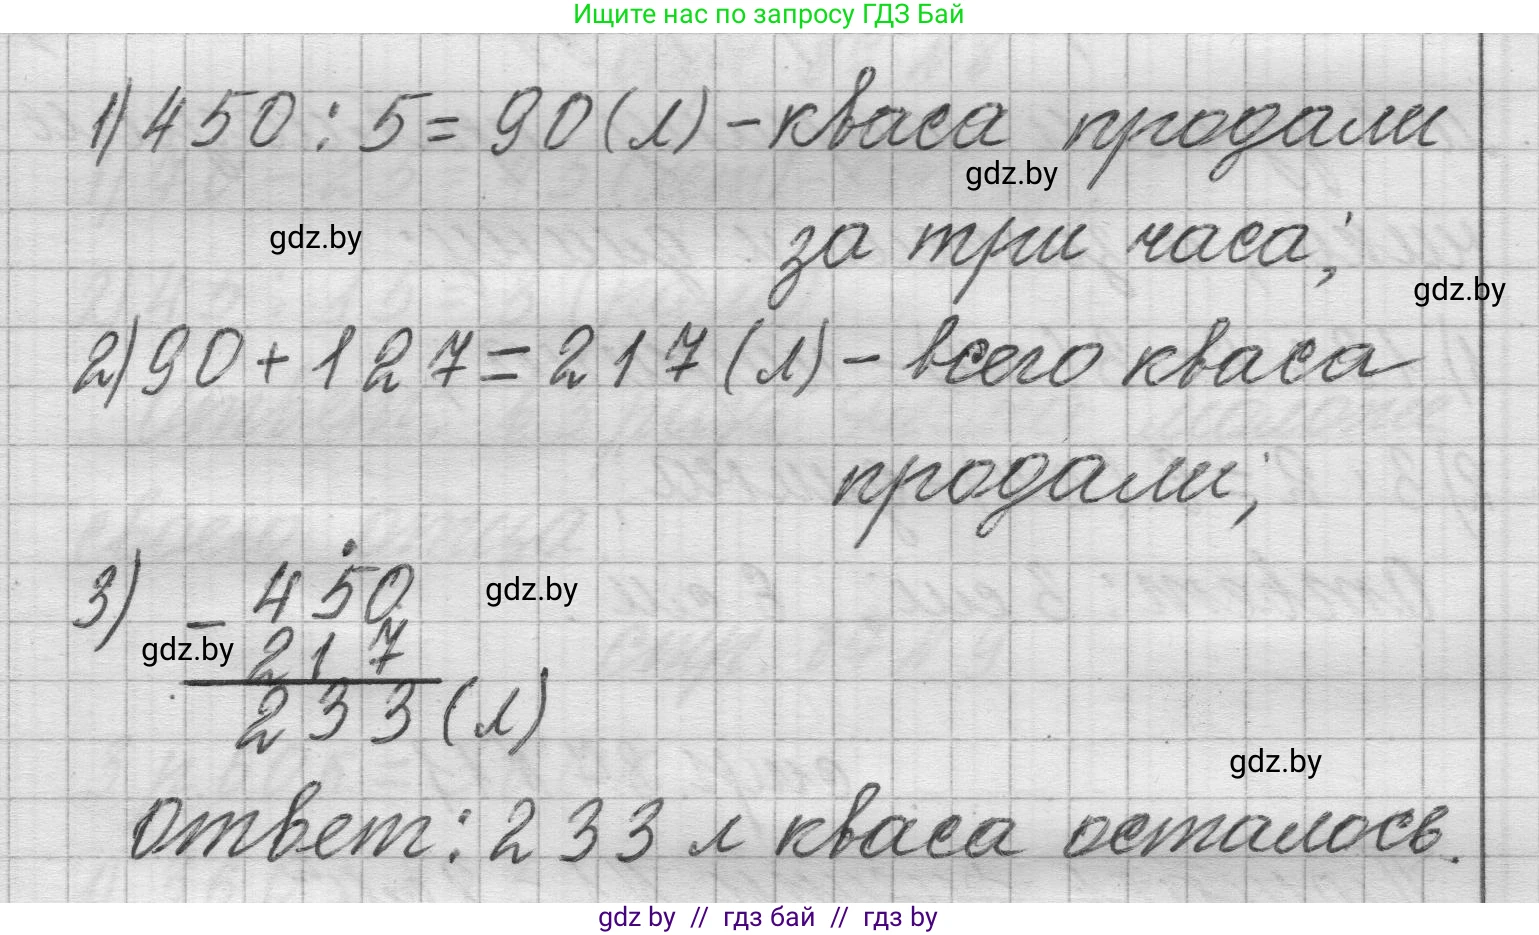 Ищите нас по запросу ГДЗ Бай
1) 450 : 5 = 90 (л) – кваса продали
gdz.by
gdz.by
за три часа;
gdz.by
2) 90 + 127 = 217 (л) – всего кваса
продали;
3) – 450
gdz.by
gdz.by
217
233 (л)
gdz.by
ответ: 233 л кваса осталось.
gdz by // гдз бай // гдз by